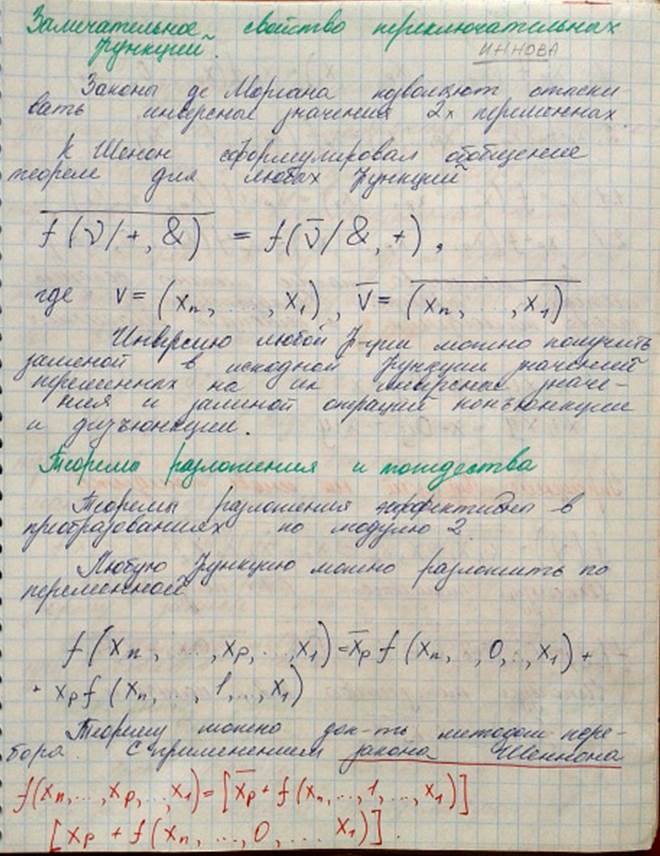 Замечательное свойство переключательных
функций.
ИННОВА
Законы де Моргана позволяют отыски
вать инверсные значения 2х переменных.
К Шенон сформулировал обобщение
теорем для любых функций
\overline{f(ν/+, &)} = f(ν̅/&, +),
где v = (xₙ, ..., x₁), v̅ = \overline{(xₙ, ..., x₁)}
Инверсию любой ф-ции можно получить
заменой в исходной функции значений
переменных на их инверсные значе-
ния и заминой операций конъюнкции
и дизъюнкции.
Теорема разложения и тождества
Теоремы разложения эффективны в
преобразованиях по модулю 2.
Любую функцию можно разложить по
переменной
f(xₙ, ..., xₚ, ..., x₁) = x̅ₚ f(xₙ, , 0, .., x₁) +
+ xₚ f(xₙ, ..., 1, .., x₁)
Теорему можно док-ть методом пере-
бора с применением закона Шеннона
f(xₙ, ..., xₚ, ... x₁) = [x̅ₚ + f(xₙ, ..., 1, ..., x₁)]
[xₚ + f(xₙ, ..., 0, ... x₁)].